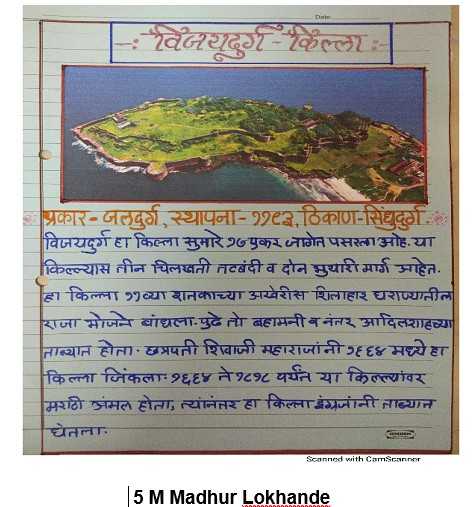 Date:
-: विजयदुर्ग - किल्ला :-
प्रकार - जलदुर्ग, स्थापना - ११९३, ठिकाण - सिंधुदुर्ग.
विजयदुर्ग हा किल्ला सुमारे १७ एकर जागेत पसरला आहे. या
किल्ल्यास तीन चिलखती तटबंदी व दोन भुयारी मार्ग आहेत.
हा किल्ला ११व्या शतकाच्या अखेरीस शिलाहार घराण्यातील
राजा भोजने बांधला. पुढे तो बहामनी व नंतर आदिलशाहच्या
ताब्यात होता. छत्रपती शिवाजी महाराजांनी १६६४ मध्ये हा
किल्ला जिंकला. १६६४ ते १८१८ पर्यंत या किल्ल्यांवर
मराठी अंमल होता, त्यानंतर हा किल्ला इंग्रजांनी ताब्यात
घेतला.
Scanned with CamScanner
5 M Madhur Lokhande